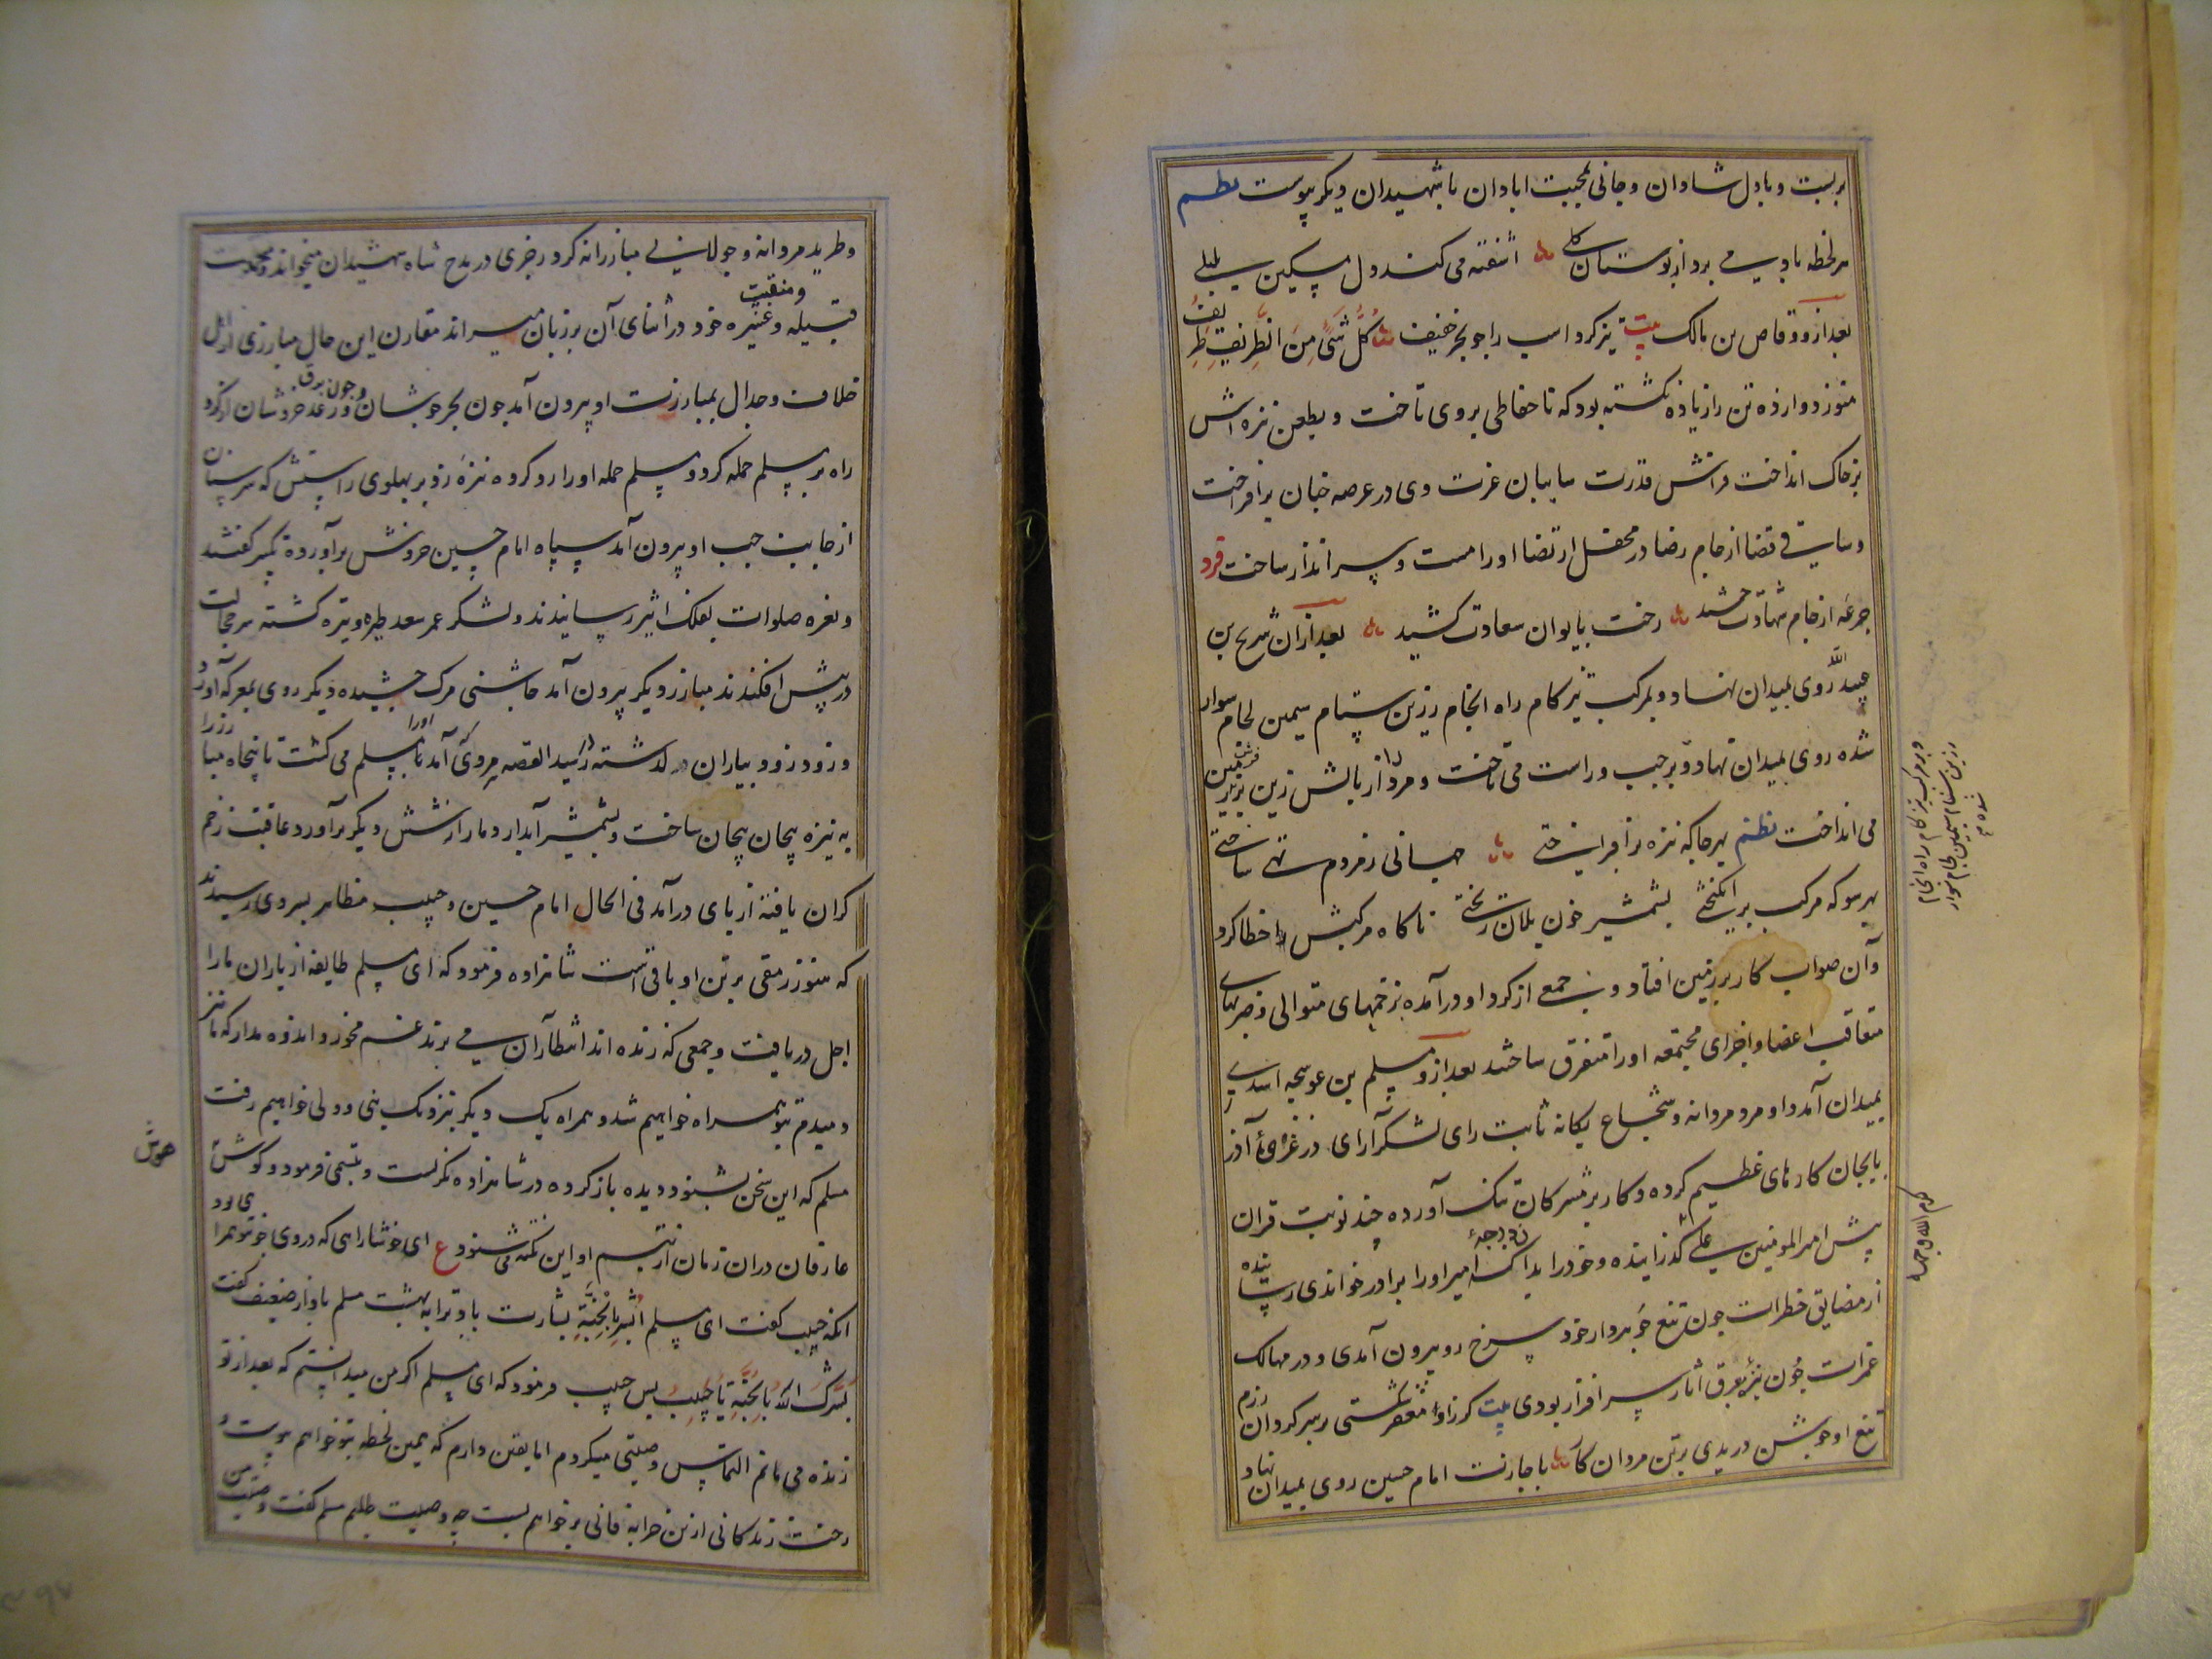 بربست و بادل شادان و جانی بمحبت ابادان با شهیدان دیکر پیوست نظم
هر لحظه باد می برد از بوستان کلی اشفته می کند دل مسکین بلبلی
بعد ازو وقاص بن مالک بیت تیز کرد اسب را چو بحر خفیف کل شیء من الظریف ظریف
هنوز دوازده تن را زیاده نکشته بود که تا حفاظی بروی تاخت و بطعن نیزه اش
بر خاک انداخت فراش قدرت سایبان عزت وی در عرصه جنان برافراخت
و ساقی قضا از جام رضا در محفل ارتضا اورا مست و سرانداز ساخت فرد
جرعه از جام شهادت چشید رخت بایوان سعادت کشید بعد ازان شریح بن
عبید الله روی بمیدان نهاد و بمرکب تیز کام راه انجام زرین ستام سیمین لجام سوار
شده روی بمیدان نهاد و بر چپ و راست می تاخت و مرد را از بالش زین بر زمین
می انداخت نظم بهرجا که نیزه برافراختی جهانی ز مردم تهی ساختی
بهر سو که مرکب برانکیختی بشمشیر خون یلان ریختی ناکاه مرکبش خطا کرد
و آن صواب کار بر زمین افتاد و جمعی از کرد او درآمده بزخمهای متوالی و ضربهای
متعاقب اعضا و اجزای مجتمعه اورا متفرق ساختند بعد ازو مسلم بن عوسجه اسدی
بمیدان آمد و او مرد مردانه و شجاع یکانه ثابت رای لشکرآرای در غزای آذر
بایجان کارهای عظیم کرده و کار بر مشرکان تنک آورده چند نوبت قران
پیش امیرالمومنین علی کذرانیده و خودرا بدانکه امیر اورا برادر خواندی رسانیده
از مضایق خطرات چون تیغ جوهردار خود سرخ رو بیرون آمدی و در مهالک
غمرات چون نیزه برق اثار سرافراز بودی بیت کرز او مغفر شکستی بر سر کردان رزم
تیغ او جوشن دریدی بر تن مردان کار با جازت امام حسین روی بمیدان نهاد
و بر مرکب تیز کام راه انجام
زرین ستام سیمین لجام سوار
شده
کرم الله وجهه
و طرید مردانه و جولانی مبارزانه کرد رجزی در مدح شاه شهیدان میخواند و محمدت
و منقبت
قبیله و عشیره خود در اثنای آن بر زبان میراند مقارن این حال مبارزی از اهل
خلاف و جدال بمبارزت او بیرون آمد چون بحر جوشان و چون برق و رعد خروشان از کرد
راه بر مسلم حمله کرد و مسلم حمله اورا رد کرده نیزه زد بر پهلوی راستش که سر سنان
از جانب چپ او بیرون آمد سپاه امام حسین خروش برآورده تکبیر کفتند
و نعره صلوات بفلک اثیر رسانیدند و لشکر عمر سعد طیره و تیره کشته سر خجالت
در پیش افکندند مبارز دیکر بیرون آمد چاشنی مرک چشیده دیکر روی بمعرکه آورد
و زود زود بیاران در کذشته رسید القصه هر وی آمد اورا مسلم می کشت تا پنجاه مبارز را
به نیزه بیجان بیجان ساخت و بشمشیر آبدار دمار از شش دیکر برآورد عاقبت زخم
کران یافته از پای درآمد فی الحال امام حسین و حبیب مظاهر بسر وی رسیدند
که هنوز رمقی بر تن او باقی است شاهزاده فرمود که ای مسلم طایفه از یاران ما را
اجل دریافت و جمعی که زنده اند انتظار آن می برند غم مخور و اندوه مدار که ما نیز
دمیدم بتو همراه خواهیم شد و همراه یک دیکر بنزدیک نبی و ولی خواهیم رفت
مسلم که این سخن بشنود دیده باز کرده در شاهزاده نکریست و تبسمی فرمود و کوش
عارفان دران زمان از تبسم او این نکته می شنود ع ای خوشا راهی که در وی چون تو همراهی بود
انکه حبیب کفت ای مسلم ابشر بالجنة بشارت باد ترا به بهشت مسلم باواز ضعیف کفت
بشرک الله بالجنة یا حبیب پس حبیب فرمود که ای مسلم اکر من میدانستم که بعد از تو
زنده می مانم التماس وصیتی میکردم اما یقین دارم که همین لحظه بتو خواهم پیوست و
رخت زندکانی ازین خرابه فانی برخواهم بست چه وصیت طلبم مسلم کفت وصیت من
هوش